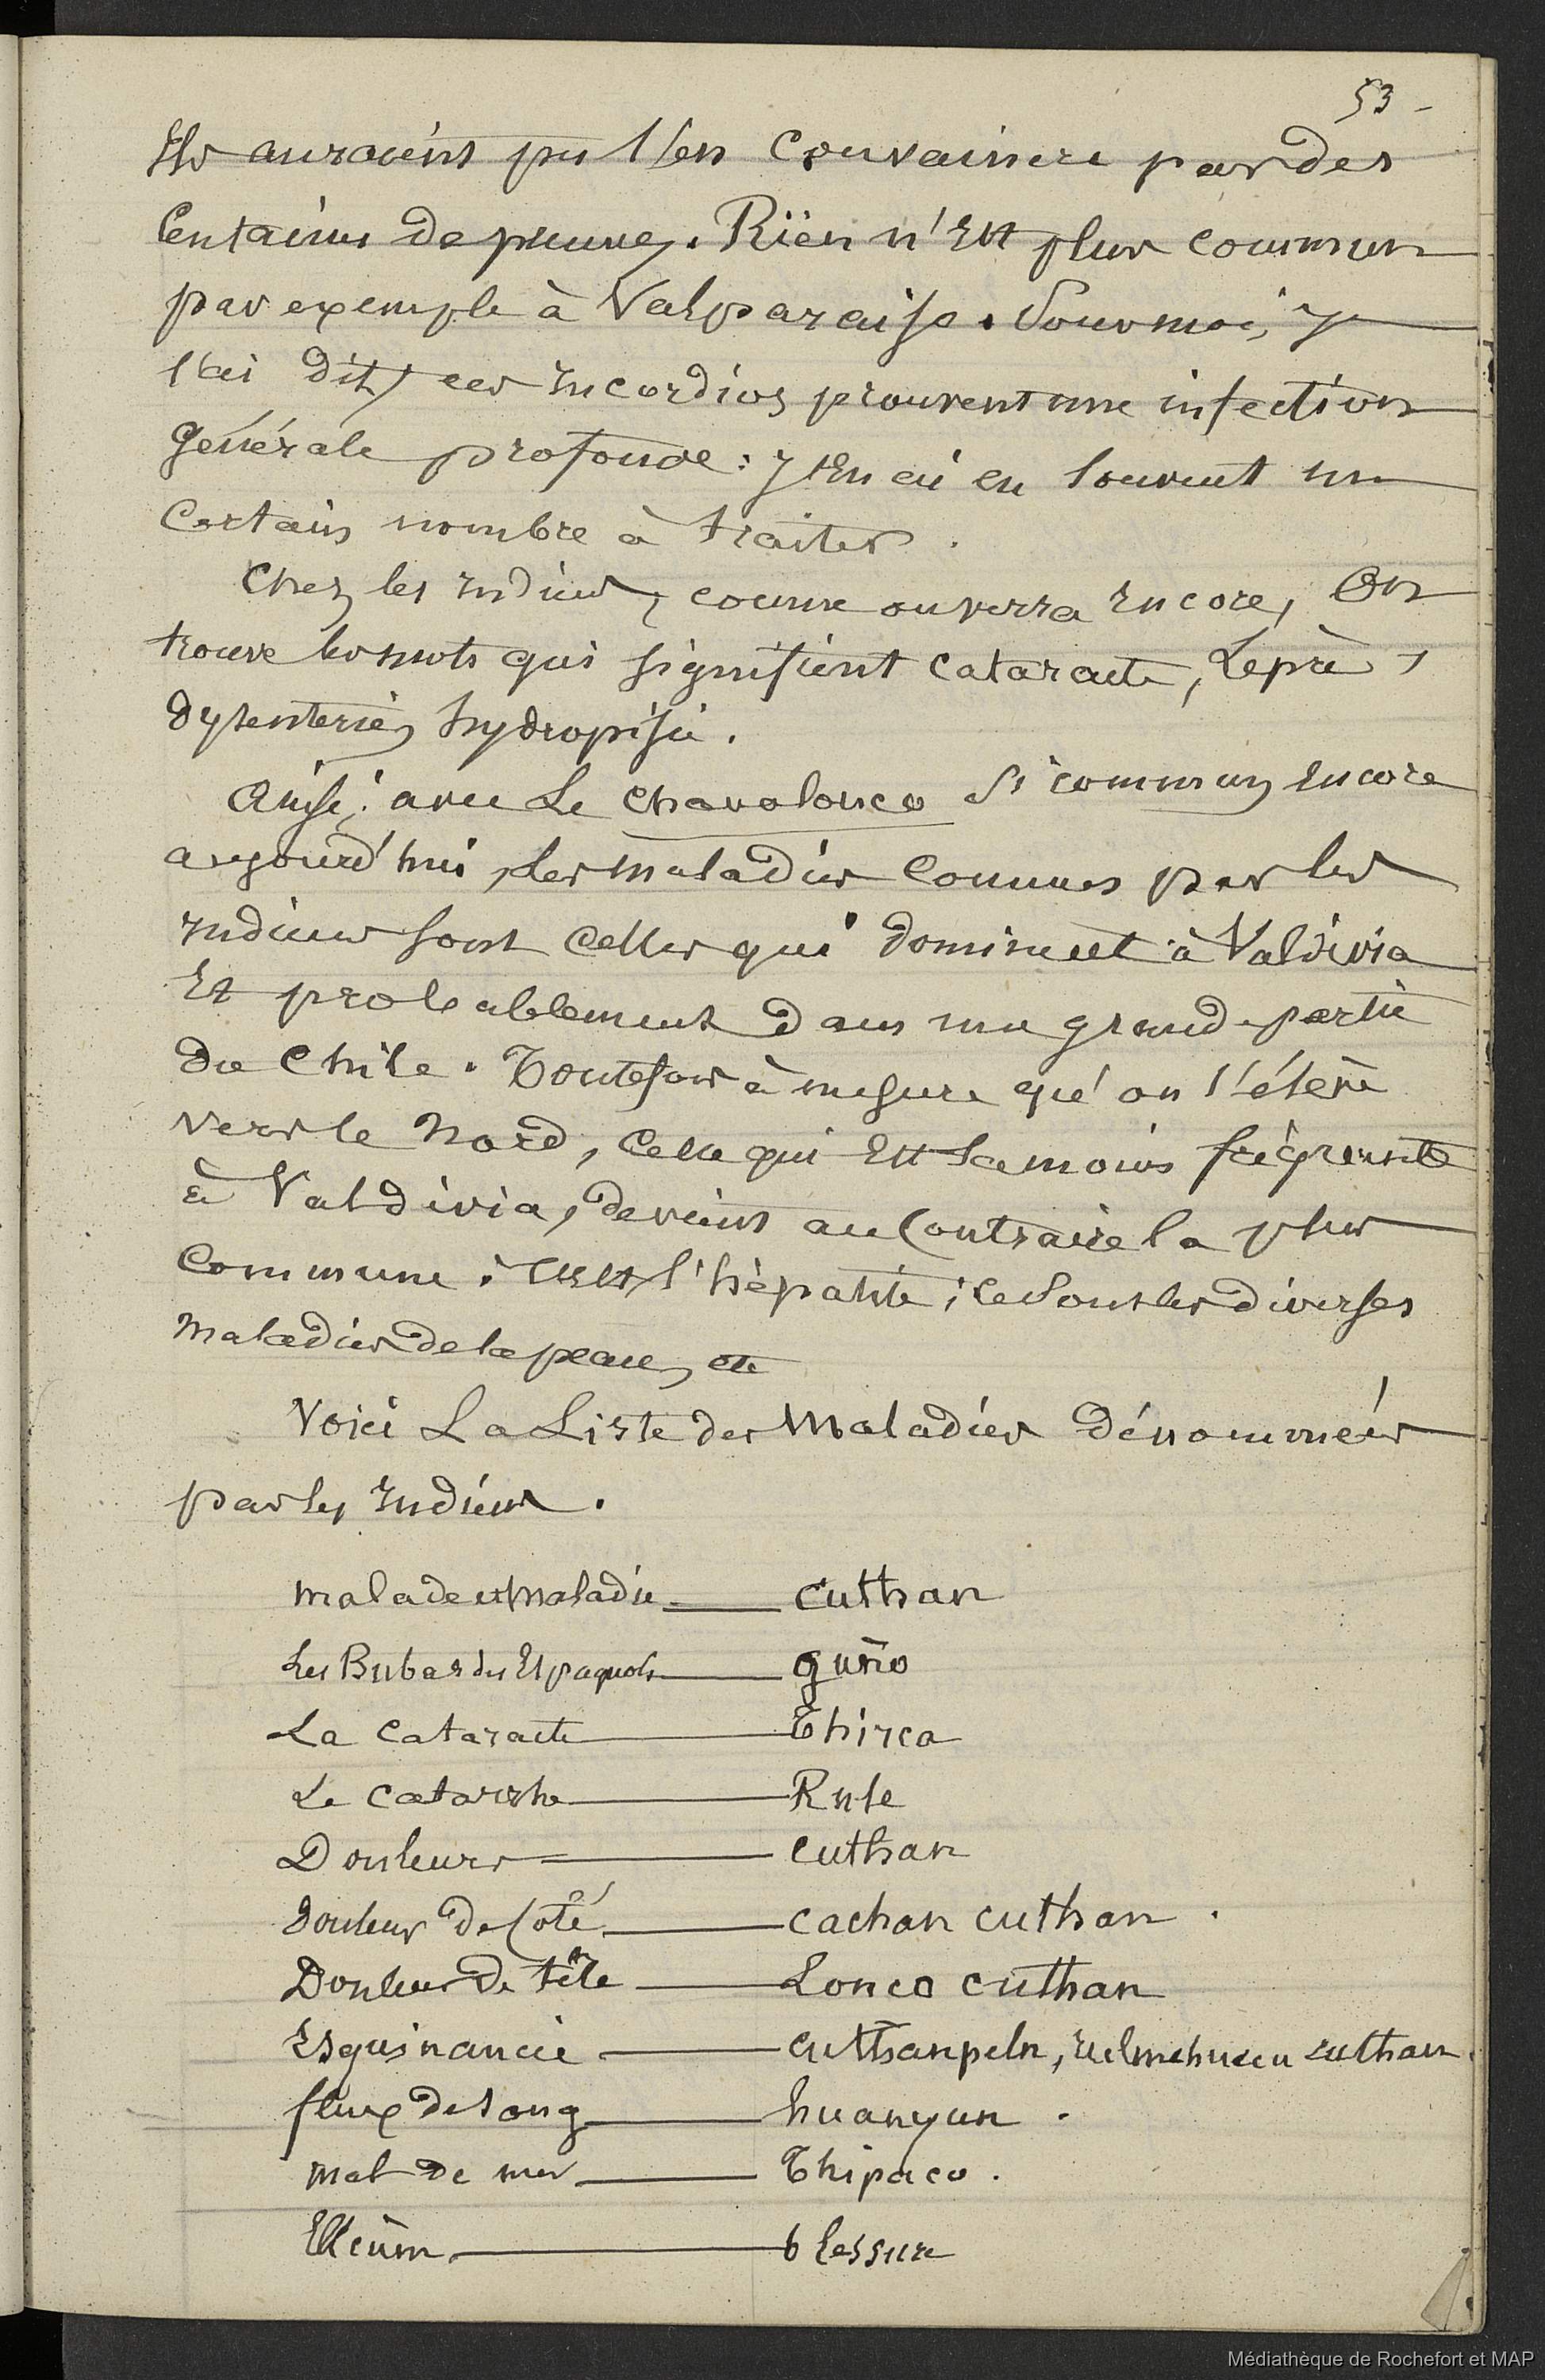 53 -
Ils auraient pu s'en convaincre par des
centaines de preuves. Rien n'est plus commun
par exemple à Valparaiso. Pour moi, je
l'ai dit, ces incordios prouvent une infection
générale profonde : j'en ai eu souvent un
certain nombre à traiter.
Chez les indiens, comme on verra encore, on
trouve les mots qui signifient cataracte, Lèpre,
dysenterie, hydropisie.
Ainsi, avec Le chavalonco si commun encore
aujourd'hui, les maladies connues par les
indiens sont celles qui dominent à Valdivia
Et probablement dans une grande partie
du Chile. Toutefois à mesure qu'on s'élève
vers le Nord, celle qui est la moins fréquente
à Valdivia, devient au contraire la plus
commune : c'est l'hépatite ; ce sont les diverses
maladies de la peau, etc
Voici La Liste des Maladies dénommées
par les indiens.
malade et maladie — cuthan
Les Bubas des Espagnols — guño
La cataracte — Thirca
Le catarrhe — Rule
Douleurs — cuthan
douleur de coté — cachan cuthan.
Douleur de tête — Lonco cuthan
Esquinancie — cuthanpeln, cuthan.
flux de sang — huanyun.
mal de mer — Thipaco.
Elleum — blessure
Médiathèque de Rochefort et MAP